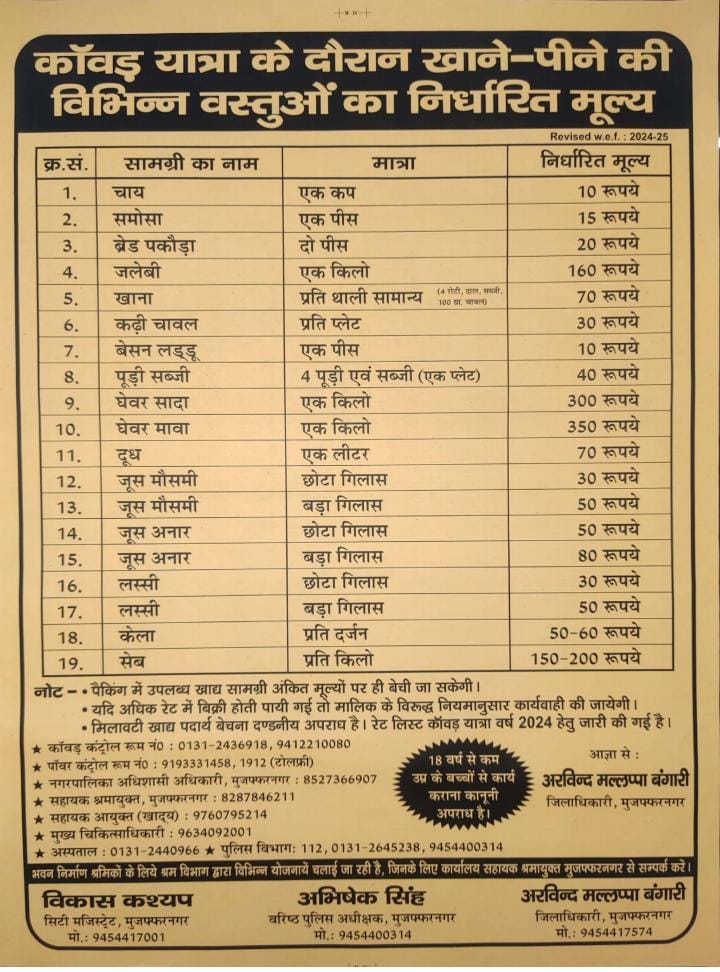 कॉवड़ यात्रा के दौरान खाने-पीने की
विभिन्न वस्तुओं का निर्धारित मूल्य
Revised w.e.f. : 2024-25
क्र.सं. सामग्री का नाम मात्रा निर्धारित मूल्य
1. चाय एक कप 10 रूपये
2. समोसा एक पीस 15 रूपये
3. ब्रेड पकौड़ा दो पीस 20 रूपये
4. जलेबी एक किलो 160 रूपये
5. खाना प्रति थाली सामान्य (4 रोटी, दाल, सब्जी, 100 ग्रा. चावल) 70 रूपये
6. कढ़ी चावल प्रति प्लेट 30 रूपये
7. बेसन लड्डू एक पीस 10 रूपये
8. पूड़ी सब्जी 4 पूड़ी एवं सब्जी (एक प्लेट) 40 रूपये
9. घेवर सादा एक किलो 300 रूपये
10. घेवर मावा एक किलो 350 रूपये
11. दूध एक लीटर 70 रूपये
12. जूस मौसमी छोटा गिलास 30 रूपये
13. जूस मौसमी बड़ा गिलास 50 रूपये
14. जूस अनार छोटा गिलास 50 रूपये
15. जूस अनार बड़ा गिलास 80 रूपये
16. लस्सी छोटा गिलास 30 रूपये
17. लस्सी बड़ा गिलास 50 रूपये
18. केला प्रति दर्जन 50-60 रूपये
19. सेब प्रति किलो 150-200 रूपये
नोट – • पैकिंग में उपलब्ध खाद्य सामग्री अंकित मूल्यों पर ही बेची जा सकेगी।
• यदि अधिक रेट में बिक्री होती पायी गई तो मालिक के विरूद्ध नियमानुसार कार्यवाही की जायेगी।
• मिलावटी खाद्य पदार्थ बेचना दण्डनीय अपराध है। रेट लिस्ट कॉवड़ यात्रा वर्ष 2024 हेतु जारी की गई है।
★ कॉवड़ कंट्रोल रूम नं0 : 0131-2436918, 9412210080
★ पॉवर कंट्रोल रूम नं0 : 9193331458, 1912 (टोलफ्री)
★ नगरपालिका अधिशासी अधिकारी, मुजफ्फरनगर : 8527366907
★ सहायक श्रमायुक्त, मुजफ्फरनगर : 8287846211
★ सहायक आयुक्त (खाद्य) : 9760795214
★ मुख्य चिकित्साधिकारी : 9634092001
★ अस्पताल : 0131-2440966 ★ पुलिस विभाग: 112, 0131-2645238, 9454400314
18 वर्ष से कम
उम्र के बच्चों से कार्य
कराना कानूनी
अपराध है।
आज्ञा से :
अरविन्द मल्लप्पा बंगारी
जिलाधिकारी, मुजफ्फरनगर
भवन निर्माण श्रमिकों के लिये श्रम विभाग द्वारा विभिन्न योजनायें चलाई जा रही है, जिनके लिए कार्यालय सहायक श्रमायुक्त मुजफ्फरनगर से सम्पर्क करें।
विकास कश्यप
सिटी मजिस्ट्रेट, मुजफ्फरनगर
मो.: 9454417001
अभिषेक सिंह
वरिष्ठ पुलिस अधीक्षक, मुजफ्फरनगर
मो.: 9454400314
अरविन्द मल्लप्पा बंगारी
जिलाधिकारी, मुजफ्फरनगर
मो.: 9454417574